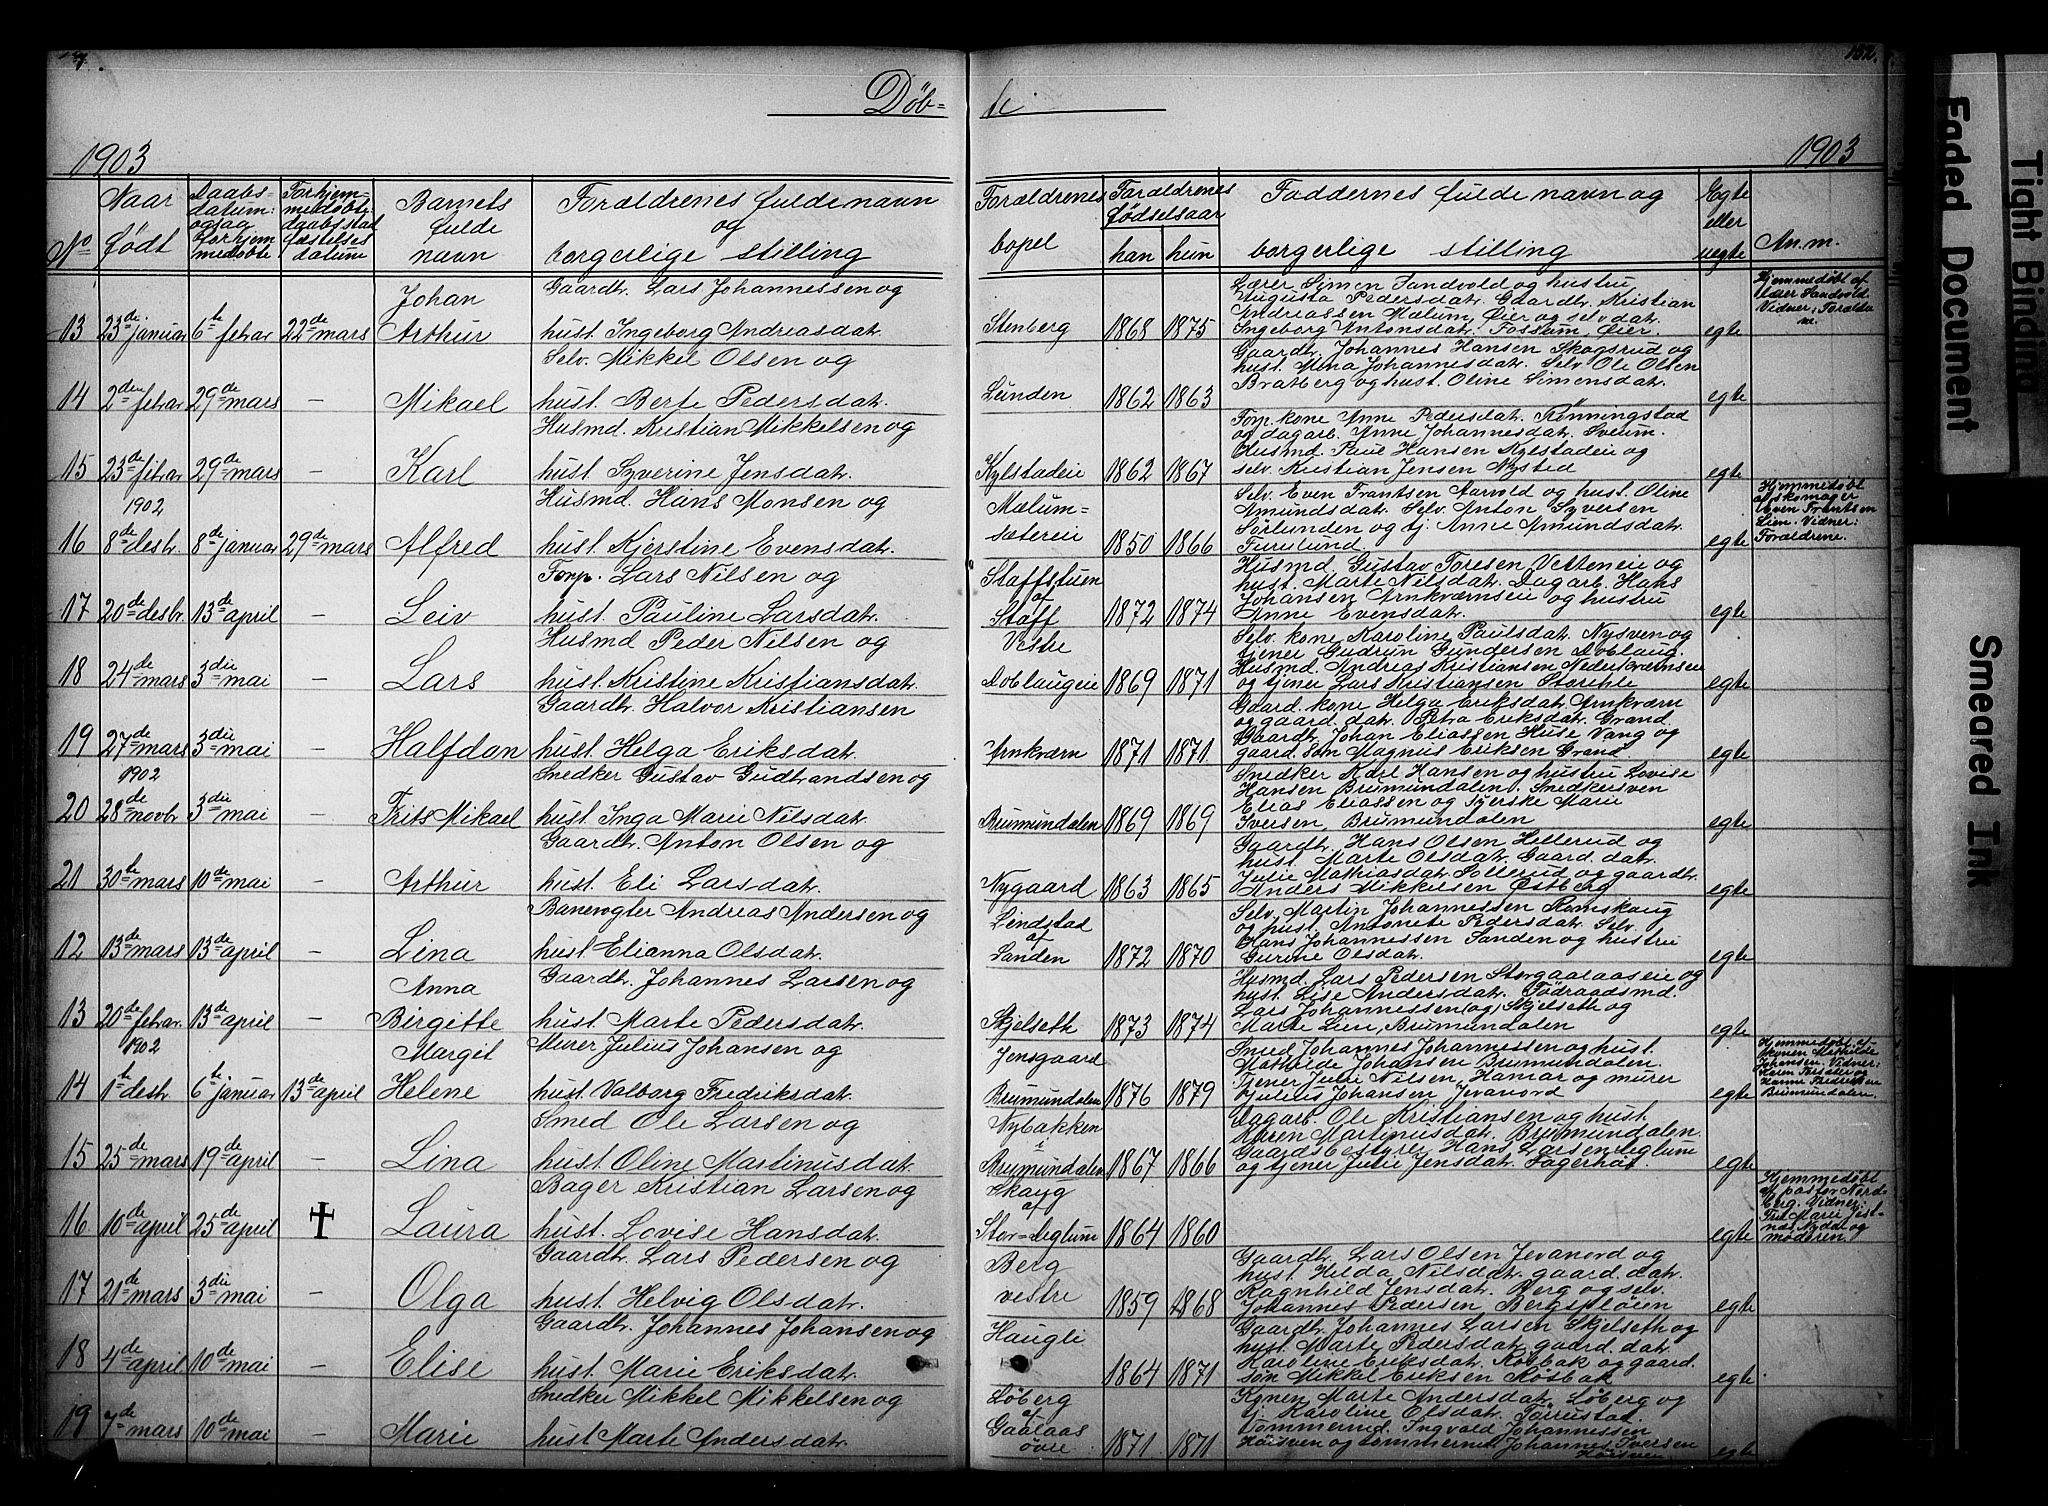 152.
Døb= te
1903 1903
No Naar født Daabsdatum: ogsaa for hjemmedøbte For hjemmedøbte: daabsstadfæstelses datum Barnets fulde navn Forældrenes fulde navn og borgerlige stilling Forældrenes bopel Forældrenes fødselsaar han hun Faddernes fulde navn og borgerlige stilling Egte eller uegte Anm.
13 23de januar 6te febrar 22de mars Johan Arthur Gaardbr. Lars Johannessen og
hust. Ingeborg Andreasdatr. Stenberg 1868 1875
Lærer Simen Sandvold og hustru
Augusta Pedersdatr. Gaardbr. Kristian
Andreassen Mælum, Øier og selv. datr.
Ingeborg Antonsdatr. Fossum, Øier. egte
Hjemmedøbt af
lærer Sandvold.
Vidner: Forældrene.
14 2den febrar 29de mars – Mikael Selv. Mikkel Olsen og
hust. Berte Pedersdatr. Lunden 1862 1863
Gaardbr. Johannes Hansen Skogsrud og
hust. Mina Johannesdatr. Selv. Ole Olsen
Bratberg og hust. Oline Simensdatr. egte
15 23de febrar 29de mars – Karl Husmd. Kristian Mikkelsen og
hust. Syverine Jensdatr. Kylstadeie 1862 1867
Forp. kone Anne Pedersdatr. Rønningstad
og dagarb. Anne Johannesdatr. Sveum.
Husmd. Paul Hansen Kylstadeie og
selv. Kristian Jensen Nysted egte
1902
16 8de desbr. 8de januar 29de mars Alfred Husmd. Hans Monsen og
hust. Kjerstine Evensdatr. Mælum=
sætereie 1850 1866
Selv. Even Frantsen Aarvold og hust. Oline
Amundsdatr. Selv. Anton Syversen
Sørlunden og tj. Anne Amundsdatr.
Furulund. egte
Hjemmedøbt
af skomager
Even Frantsen
Lien. Vidner:
Forældrene.
17 20de desbr. 13de april – Leiv Forp. Lars Nilsen og
hust. Pauline Larsdatr. Staffstuen
af
Staff 1872 1874
Husmd. Gustav Toresen Vetteneie og
hust. Marte Nilsdatr. Dagarb. Hans
Johansen Arnkværnseie og hustru
Anne Evensdatr. egte
18 24de mars 3die mai – Lars Husmd Peder Nilsen og
hust. Kristine Kristiansdatr. Vestre
Doblaugeie 1869 1871
Selv. kone Karoline Paulsdatr. Nysven og
tjener Gudrun Gundersen Doblaug.
Husmd. Andreas Kristiansen Nederkværnsen
og tjener Lars Kristiansen Storihle egte
19 27de mars 3die mai – Halfdan Gaardbr. Halvor Kristiansen
hust. Helga Eriksdatr. Arnkværn 1871 1871
Gaard. kone Helga Eriksdatr. Arnkværn
og gaard. datr. Petra Eriksdatr. Grand.
Gaardbr. Johan Eliassen Huse Vang og
gaard. søn Magnus Eriksen Grand egte
1902
20 28de novbr 3die mai – Frits Mikael Snedker Gustav Gudbrandsen og
hust. Inga Marie Nilsdatr. Brumundalen 1869 1869
Snedker Karl Hansen og hustru Lovise
Hansen Brumundalen. Snedkersven
Elias Eliassen og Syerske Marie
Iversen, Brumundalen egte
21 30te mars 10de mai – Arthur Gaardbr. Anton Olsen og
hust. Eli Larsdatr. Nygaard 1863 1865
Gaardbr. Hans Olsen Hellerud og
hust. Marte Olsdatr. Gaard. datr.
Julie Mathiasdatr. Sollerud og gaardbr.
Anders Mikkelsen Østberg egte
12 13de mars 13de april – Lina Banevogter Andreas Andersen og
hust. Elianna Olsdatr. Lendstad
af
Sanden 1872 1870
Selv. Martin Johannessen Romskaug
og hust. Antonete Pedersdatr. Selv.
Hans Johannessen Sanden og hustru
Gurine Olsdatr. egte
13 20de febrar. 13de april – Anna Birgitte Gaardbr. Johannes Larsen og
hust. Marte Pedersdatr. Skjelseth 1873 1874
Husmd. Lars Pedersen Storgaalaaseie og
hust. Lise Andersdatr. Føderaadsmd.
Lars Johannessen (og) Skjelseth og
Marte Lien, Brumundalen egte
1902
14 1ste desbr. 6te januar 13de april Margit Helene Murer Julius Johansen og
hust. Valborg Fredriksdatr. Jensgaard
Brumundalen 1876 1879
Smed Johannes Johannessen og hust.
Mathilde Johansen Brumundalen.
Tjener Julie Nilsen, Hamar og murer
Julius Johansen Jevanord egte
Hjemmedøbt af
konen Mathilde
Johansen. Vidner:
Karen Torsæter og
Hanne Fredriksen
Brumundalen.
15 25de mars 19de april – Lina Smed Ole Larsen og
hust. Oline Martinusdatr. Nybakken
i
Brumundalen 1867 1866
Dagarb. Ole Kristiansen og hust.
Karen Martinusdatr. Brumundalen.
Gaardsbestyrer Hans Larsen Aeglum
og tjener Julie Jensdatr. Fagerhøi. egte
16 10de april 25de april ✝ Laura Bager Kristian Larsen og
hust. Lovise Hansdatr. Skaug
af
Stor=Aeglum 1864 1860 egte
Hjemmedøbt
af pastor Nord-
berg. Vidner:
Marie
og
moderen
17 21de mars 3die mai – Olga Gaardbr. Lars Pedersen og
hust. Helvig Olsdatr. Berg
vestre 1859 1868
Gaardbr. Lars Olsen Jevanord og
hust. Hilda Nilsdatr. gaard. datr.
Ragnhild Jensdatr. Berg og selv.
Johannes Pedersen Bergspløien egte
18 4de april 10de mai – Elise Gaardbr. Johannes Johansen og
hust. Marie Eriksdatr. Haugli 1864 1871
Gaardbr. Johannes Larsen Skjelseth og
hust. Marte Pedersdatr. gaard. datr.
Karoline Eriksdatr. Rosbak og gaard.
søn Mikkel Eriksen Rosbak egte
19 7de mars 10de mai – Marie Snedker Mikkel Mikkelsen og
hust. Marte Andersdatr. Løberg
af
Gaalaas
øvre 1871 1871
Konen Marte Andersdatr. Løberg og
tj. Karoline Olsdatr. Tørrustad.
Tømmermd. Ingvald Johannessen
Høisven og tømmermd. Johannes Iversen
Høisven egte
Faded Document
Tight Binding
Smeared Ink